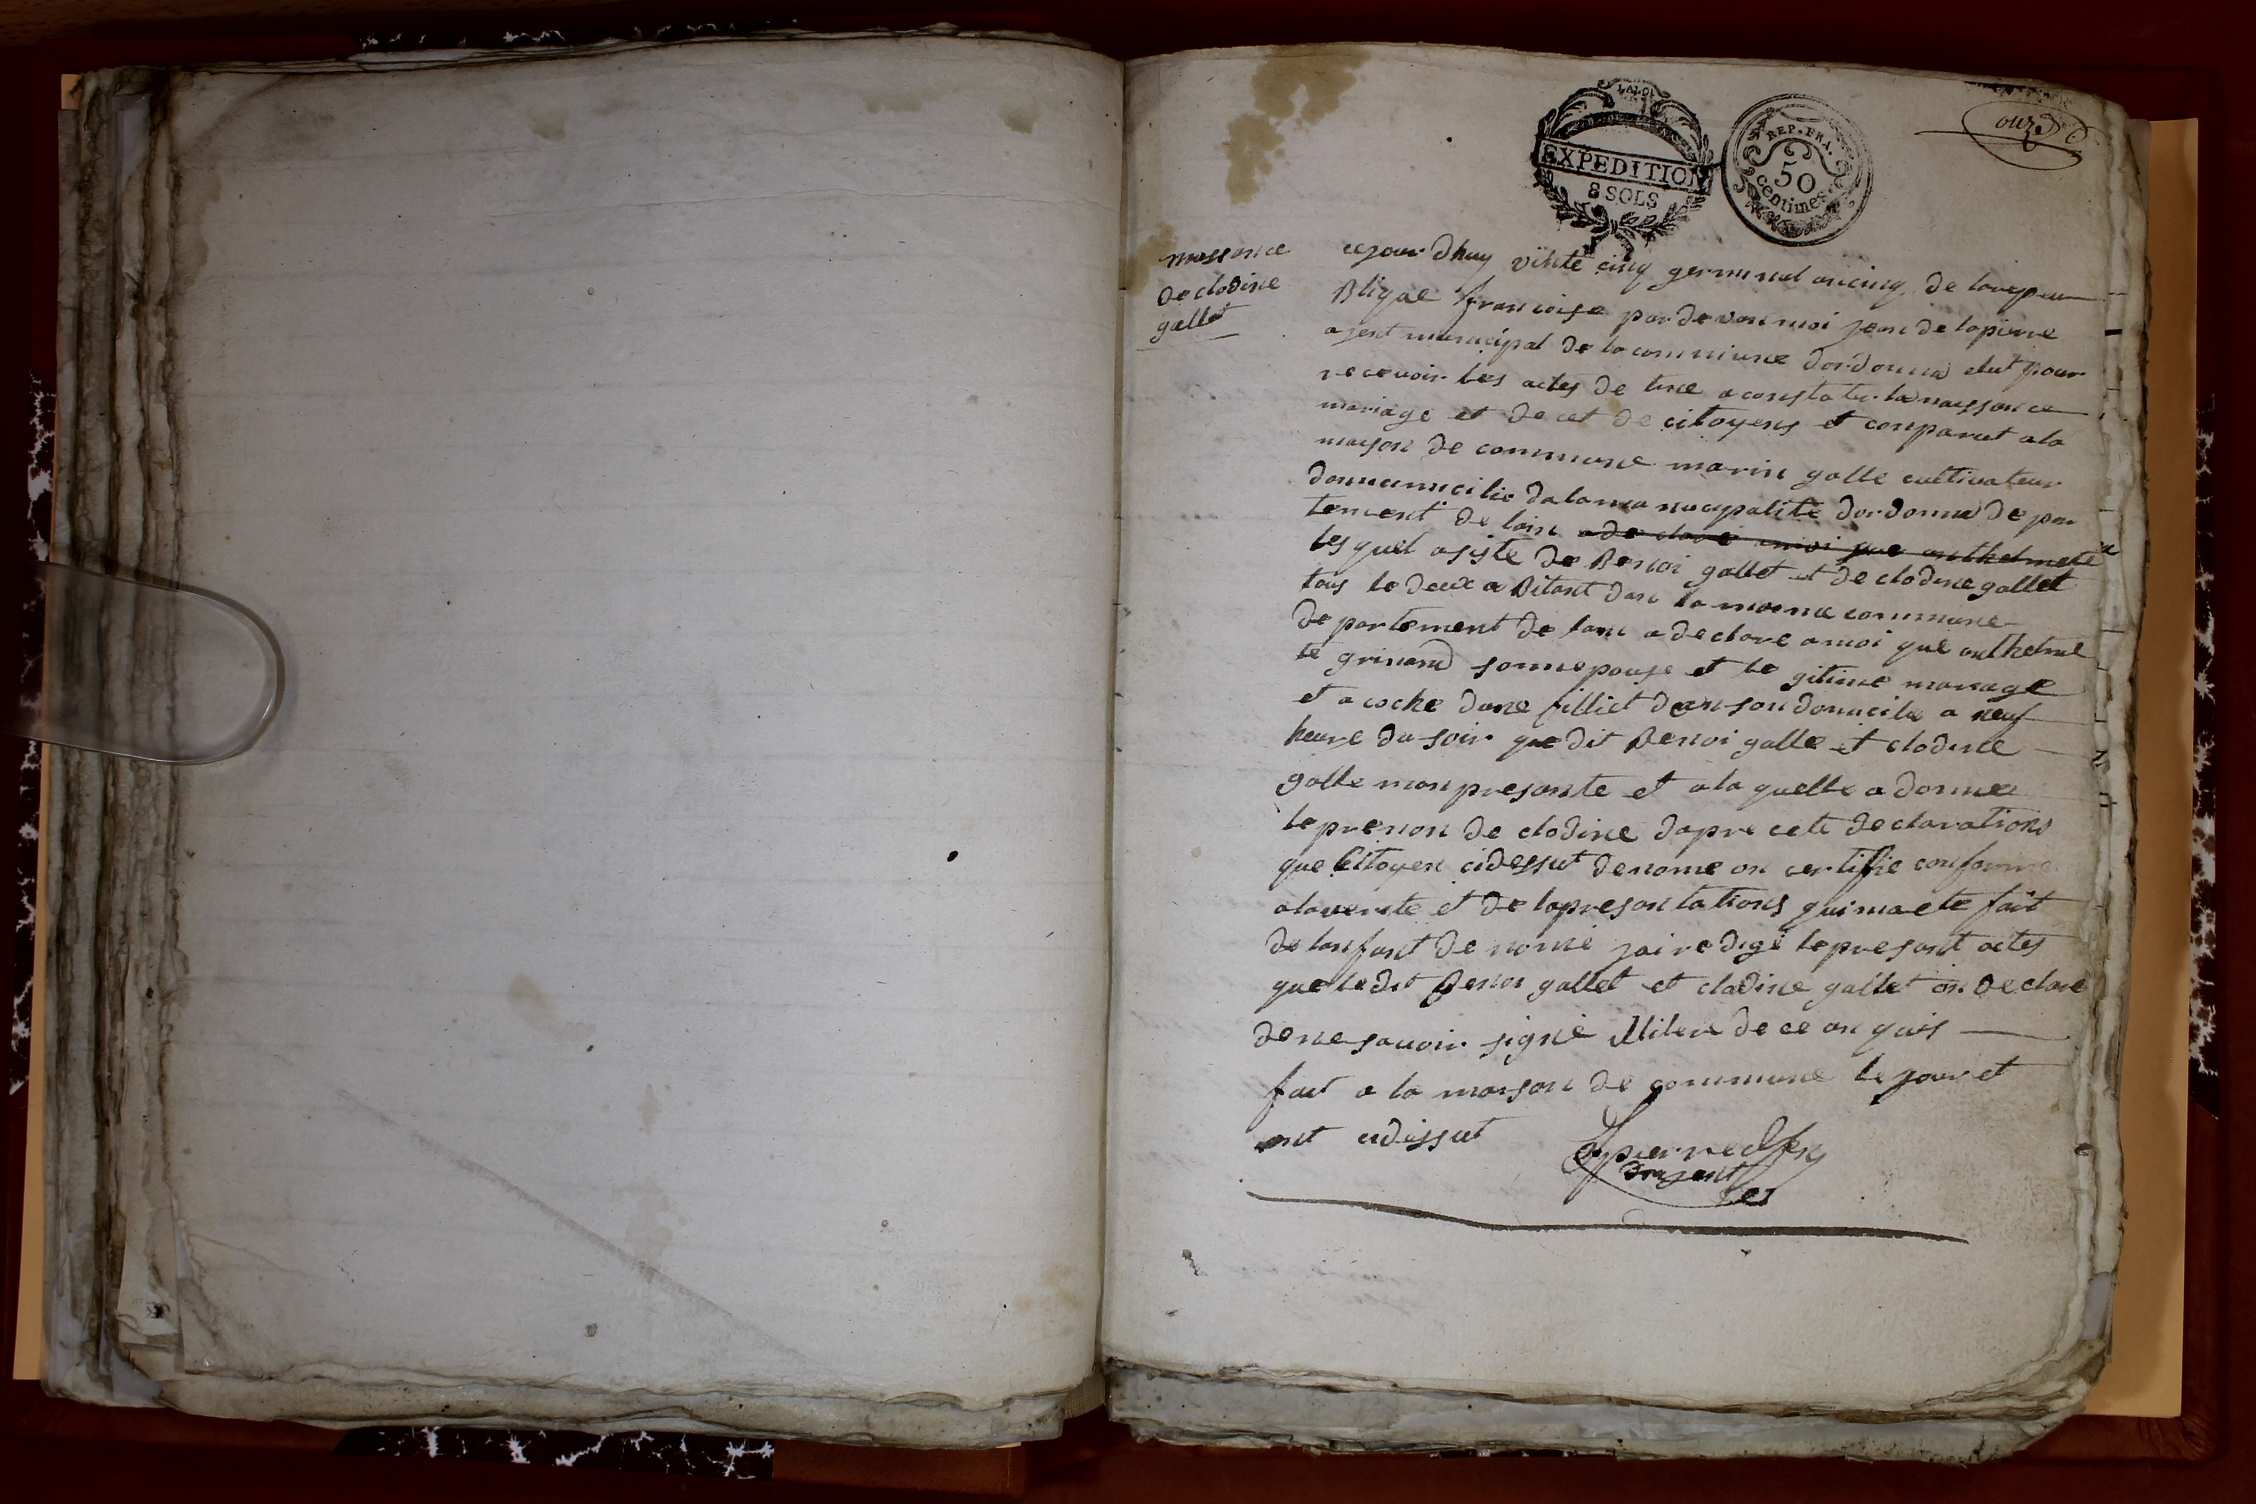 LA LOI
EXPEDITION
8 SOLS
REP. FRA.
50
centimes
onze
naissance
de clodine
gallet
cejour dhuy vinte cinq germinal ancinq de larepu
Blique francoise pardevan moi jean de lapierre
ajent municipal de la commune dordonna elut pour
recevoir les actes de tine a constater la naissance
mariage et de cet de citoyens et comparut a la
maison de commune marin galle cultivateur
domicilie da la municipalite dordonna de par
tement de lain a de clare amoi que anthelmete
lesquel asiste de Benoi gallet et de clodine gallet
tous le deux a Bitant dans la meme commune
departement de lain a declare amoi que anthelme
te grinand sonnepouse et le gitime mariage
et acoche dune filliet dans son domicile a neuf
heure du soir que dit Benoi galle et clodine
galle mon presante et a la quelle a donnee
le prenon de clodine dapre cete declarations
que Citoyen cidessut denome on certifie conforme
a la verite et de lapresantations qui ma ete fait
de lanfant denomé jai redigé lepresant actes
que ledit Benoi gallet et clodine gallet on declare
de ne savoir signé de ce on quis
fait a la maison de commune le jour et
ant cidessut
Lapierre
ajent